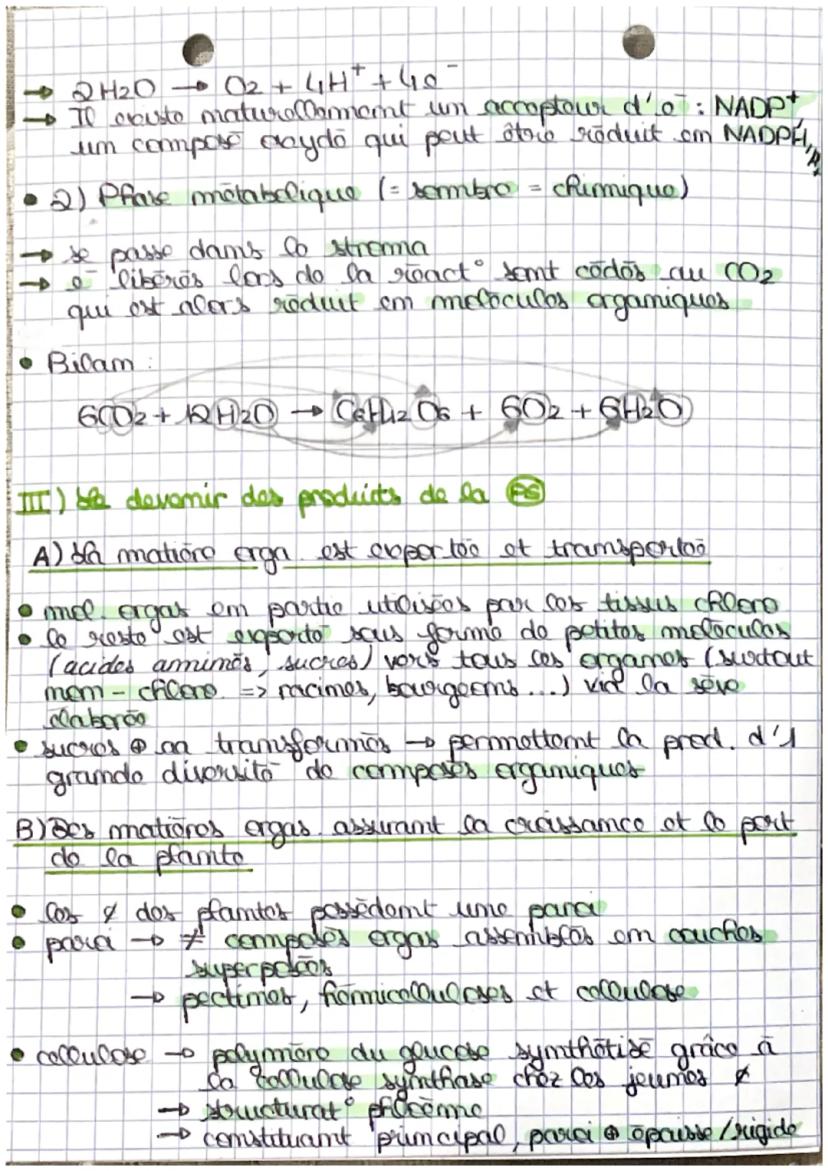 → 2H2O → O2 + 4H+ + 4e-
→ Il existe naturellement un accepteur d'e- : NADP+,
un composé oxydé qui peut être réduit en NADPH,H+
• 2) Phase métabolique (= sombre = chimique)
→ se passe dans le stroma
→ e- libérés lors de la réact° sont cédés au CO2
qui est alors réduit en molécules organiques
• Bilan :
6CO2 + 12H2O → C6H12O6 + 6O2 + 6H2O
III) Le devenir des produits de la PS
A) La matière orga. est exportée et transportée
• mol. orgas en partie utilisées par les tissus chloro
• le reste est exporté sous forme de petites molécules
(acides aminés, sucres) vers tous les organes (surtout
non - chloro. => racines, bourgeons...) via la sève
élaborée
• sucres ⊕ aa transformés → permettent la prod. d'1
grande diversité de composés organiques
B) Des matières orgas. assurant la croissance et le port
de la plante
• les ¢ des plantes possèdent une paroi
• paroi → ≠ composés orgas assemblés en couches
superposées
→ pectines, hémicelluloses et cellulose
• cellulose → polymère du glucose synthétisé grâce à
la cellulose synthase chez les jeunes ¢
→ structurat° phloème
→ constituant principal, paroi ⊕ épaisse/rigide